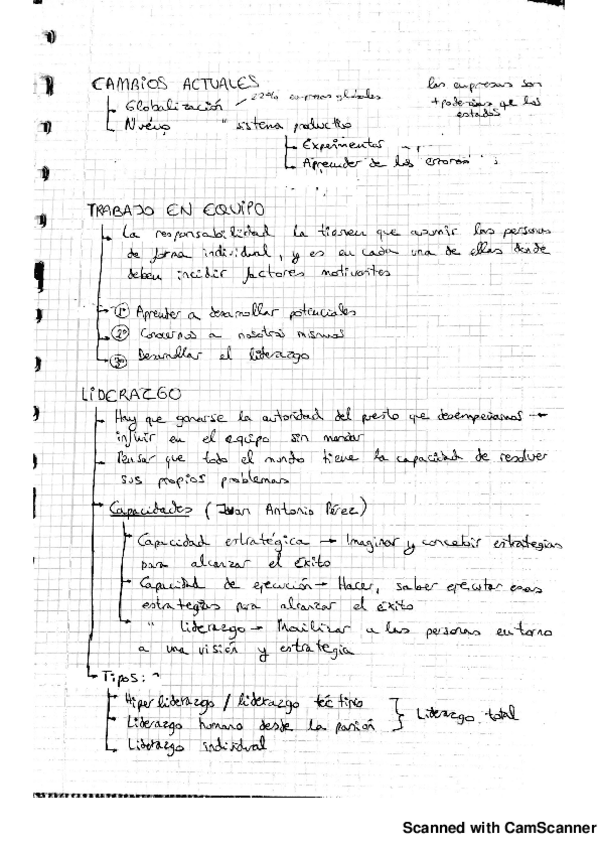 CAMBIOS ACTUALES
Globalización
las empresas son
+ poderosas que los
estados
Nuevo sistema productivo
Experimentar
Aprender de los errores
TRABAJO EN EQUIPO
La responsabilidad la tienen que asumir las personas
de forma individual, y es en cada una de ellas donde
deben incidir factores motivantes
1º Aprender a desarrollar potenciales
2º Conocernos a nosotros mismos
3º Desarrollar el liderazgo
LIDERAZGO
Hay que ganarse la autoridad del puesto que desempeñamos →
influir en el equipo sin mandar
Pensar que todo el mundo tiene la capacidad de resolver
sus propios problemas
Capacidades (Juan Antonio Pérez)
Capacidad estratégica → Imaginar y concebir estrategias
para alcanzar el éxito
Capacidad de ejecución → Hacer, saber ejecutar esas
estrategias para alcanzar el éxito
" liderazgo → Movilizar a las personas en torno
a una visión y estrategia
Tipos:
Hiperliderazgo / liderazgo
Liderazgo humano desde la pasión
Liderazgo total
Liderazgo individual
Scanned with CamScanner